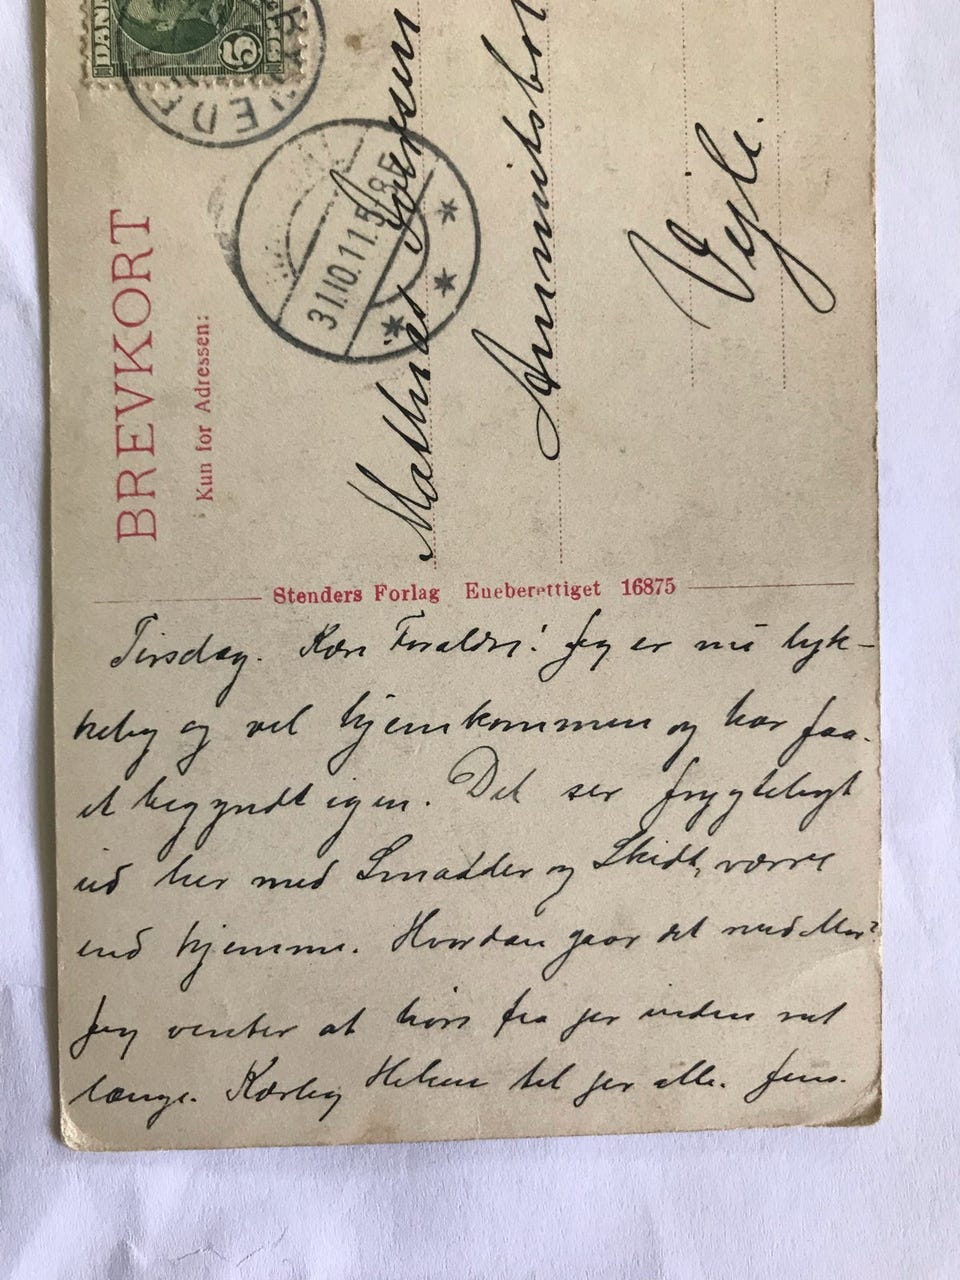 DAN
5
BREVKORT
Kun for Adressen:
31.10.11.5-8E
Mathias Iversen
Ammitsbøl
Vejle.
Stenders Forlag Eneberettiget 16875
Tirsdag. Kære Forældre! Jeg er nu lyk-
kelig og vel hjemkommen og har faa-
et begyndt igen. Det ser frygteligt
ud her med Smadder og Skidt, værre
end hjemme. Hvordan gaar det med Mor?
Jeg venter at høre fra jer inden ret
længe. Kærlig Hilsen til jer alle. Jens.